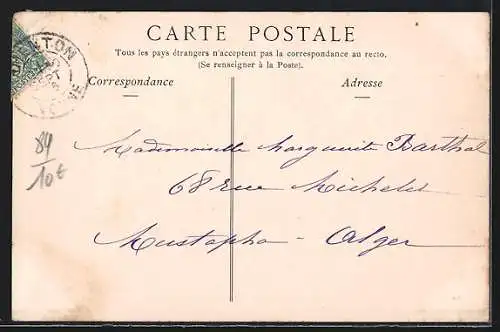 CARTE POSTALE
Tous les pays étrangers n'acceptent pas la correspondance au recto.
(Se renseigner à la Poste).
Correspondance
Adresse
Mademoiselle Marguerite Barthal
68 rue Michelet
Mustapha - Alger
84
10€